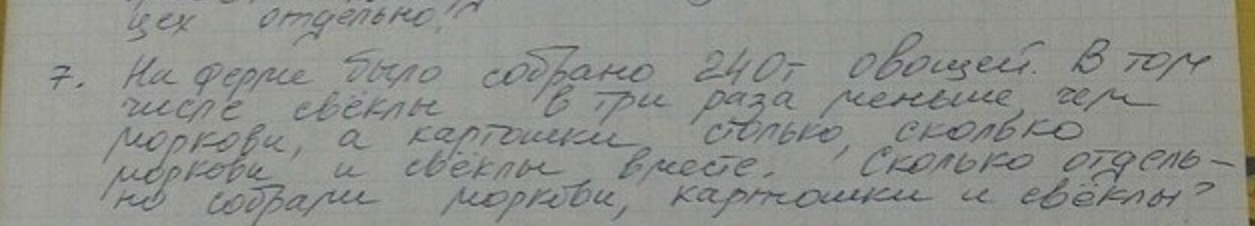 цех отдельно?
7. На ферме было собрано 240т овощей. В том
числе свёклы в три раза меньше, чем
моркови, а картошки столько, сколько
моркови и свеклы вместе. Сколько отдель-
но собрали моркови, картошки и свёклы?